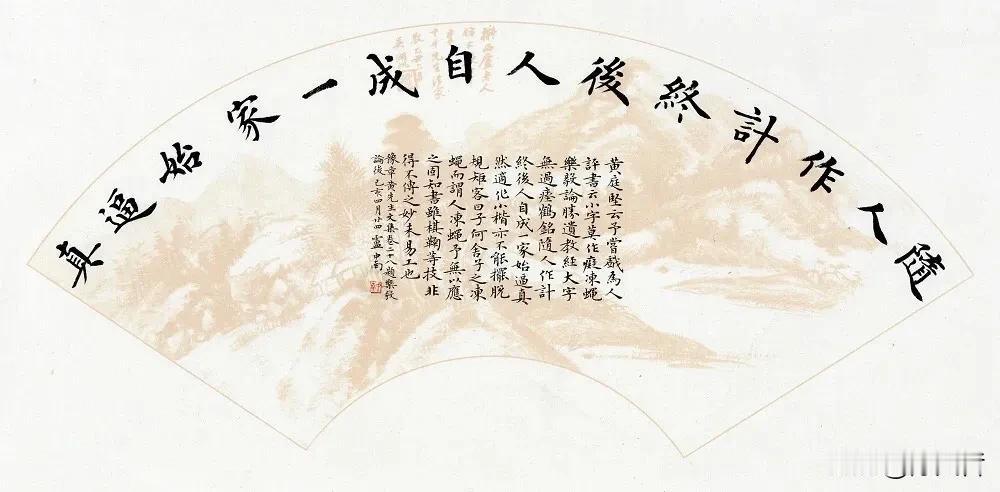 隨人作計終後人自成一家始逼真
黃庭堅云予嘗戲為人
評書云小字莫作癡凍蠅
樂毅論勝遺教經大字
無過瘞鶴銘隨人作計
終後人自成一家始逼真
然適作小楷亦不能擺脫
規矩客曰子何舍子之凍
蠅而謂人凍蠅予無以應
之固知書雖棋鞠等技非
得不傳之妙未易工也
豫章黃先生文集卷二十八題樂毅
論後己亥四月廿四盧中南